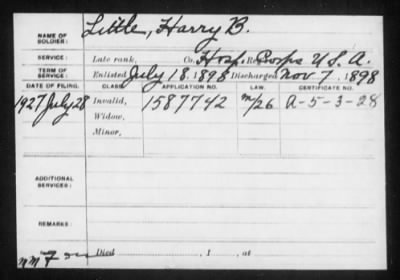 NAME OF SOLDIER: Little, Harry B.
SERVICE: Late rank, Co. Hosp. Corps U.S.A.
TERM OF SERVICE: Enlisted July 18, 1898 Discharged Nov 7, 1898
DATE OF FILING. CLASS. APPLICATION NO. LAW. CERTIFICATE NO.
1927 July 28 Invalid, 1587742 A-5-3-28
Widow,
Minor,
ADDITIONAL SERVICES:
REMARKS:
Died , 1 , at